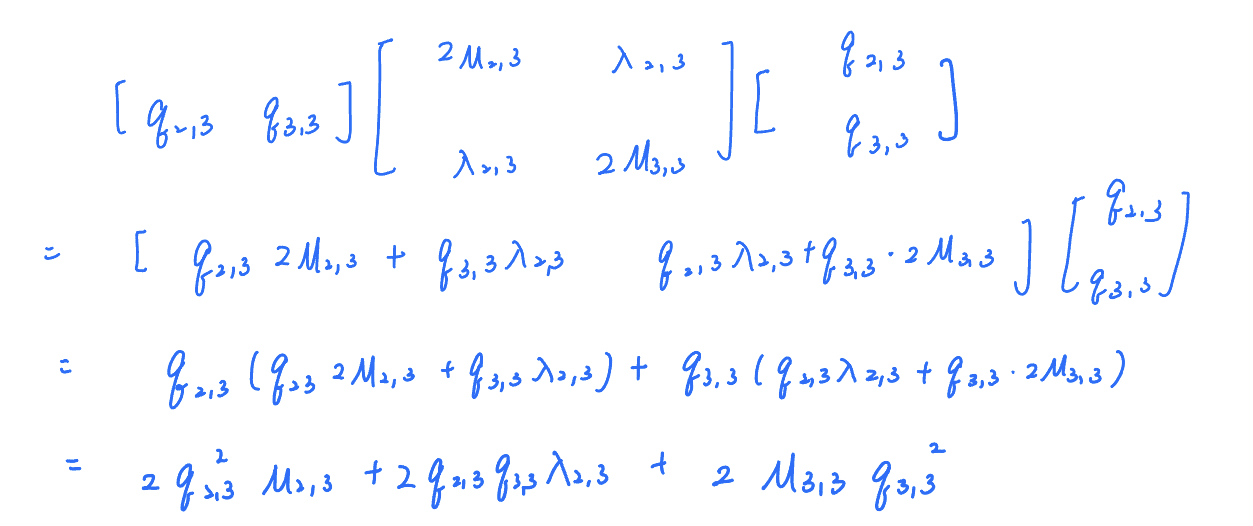 [ q_{2,3} q_{3,3} ] [ 2μ_{2,3} λ_{2,3} ; λ_{2,3} 2μ_{3,3} ] [ q_{2,3} ; q_{3,3} ]
= [ q_{2,3} 2μ_{2,3} + q_{3,3} λ_{2,3} q_{2,3} λ_{2,3} + q_{3,3} · 2μ_{3,3} ] [ q_{2,3} ; q_{3,3} ]
= q_{2,3} ( q_{23} 2μ_{2,3} + q_{3,3} λ_{2,3} ) + q_{3,3} ( q_{2,3} λ_{2,3} + q_{3,3} · 2μ_{3,3} )
= 2 q_{2,3}^2 μ_{2,3} + 2 q_{2,3} q_{3,3} λ_{2,3} + 2 μ_{3,3} q_{3,3}^2